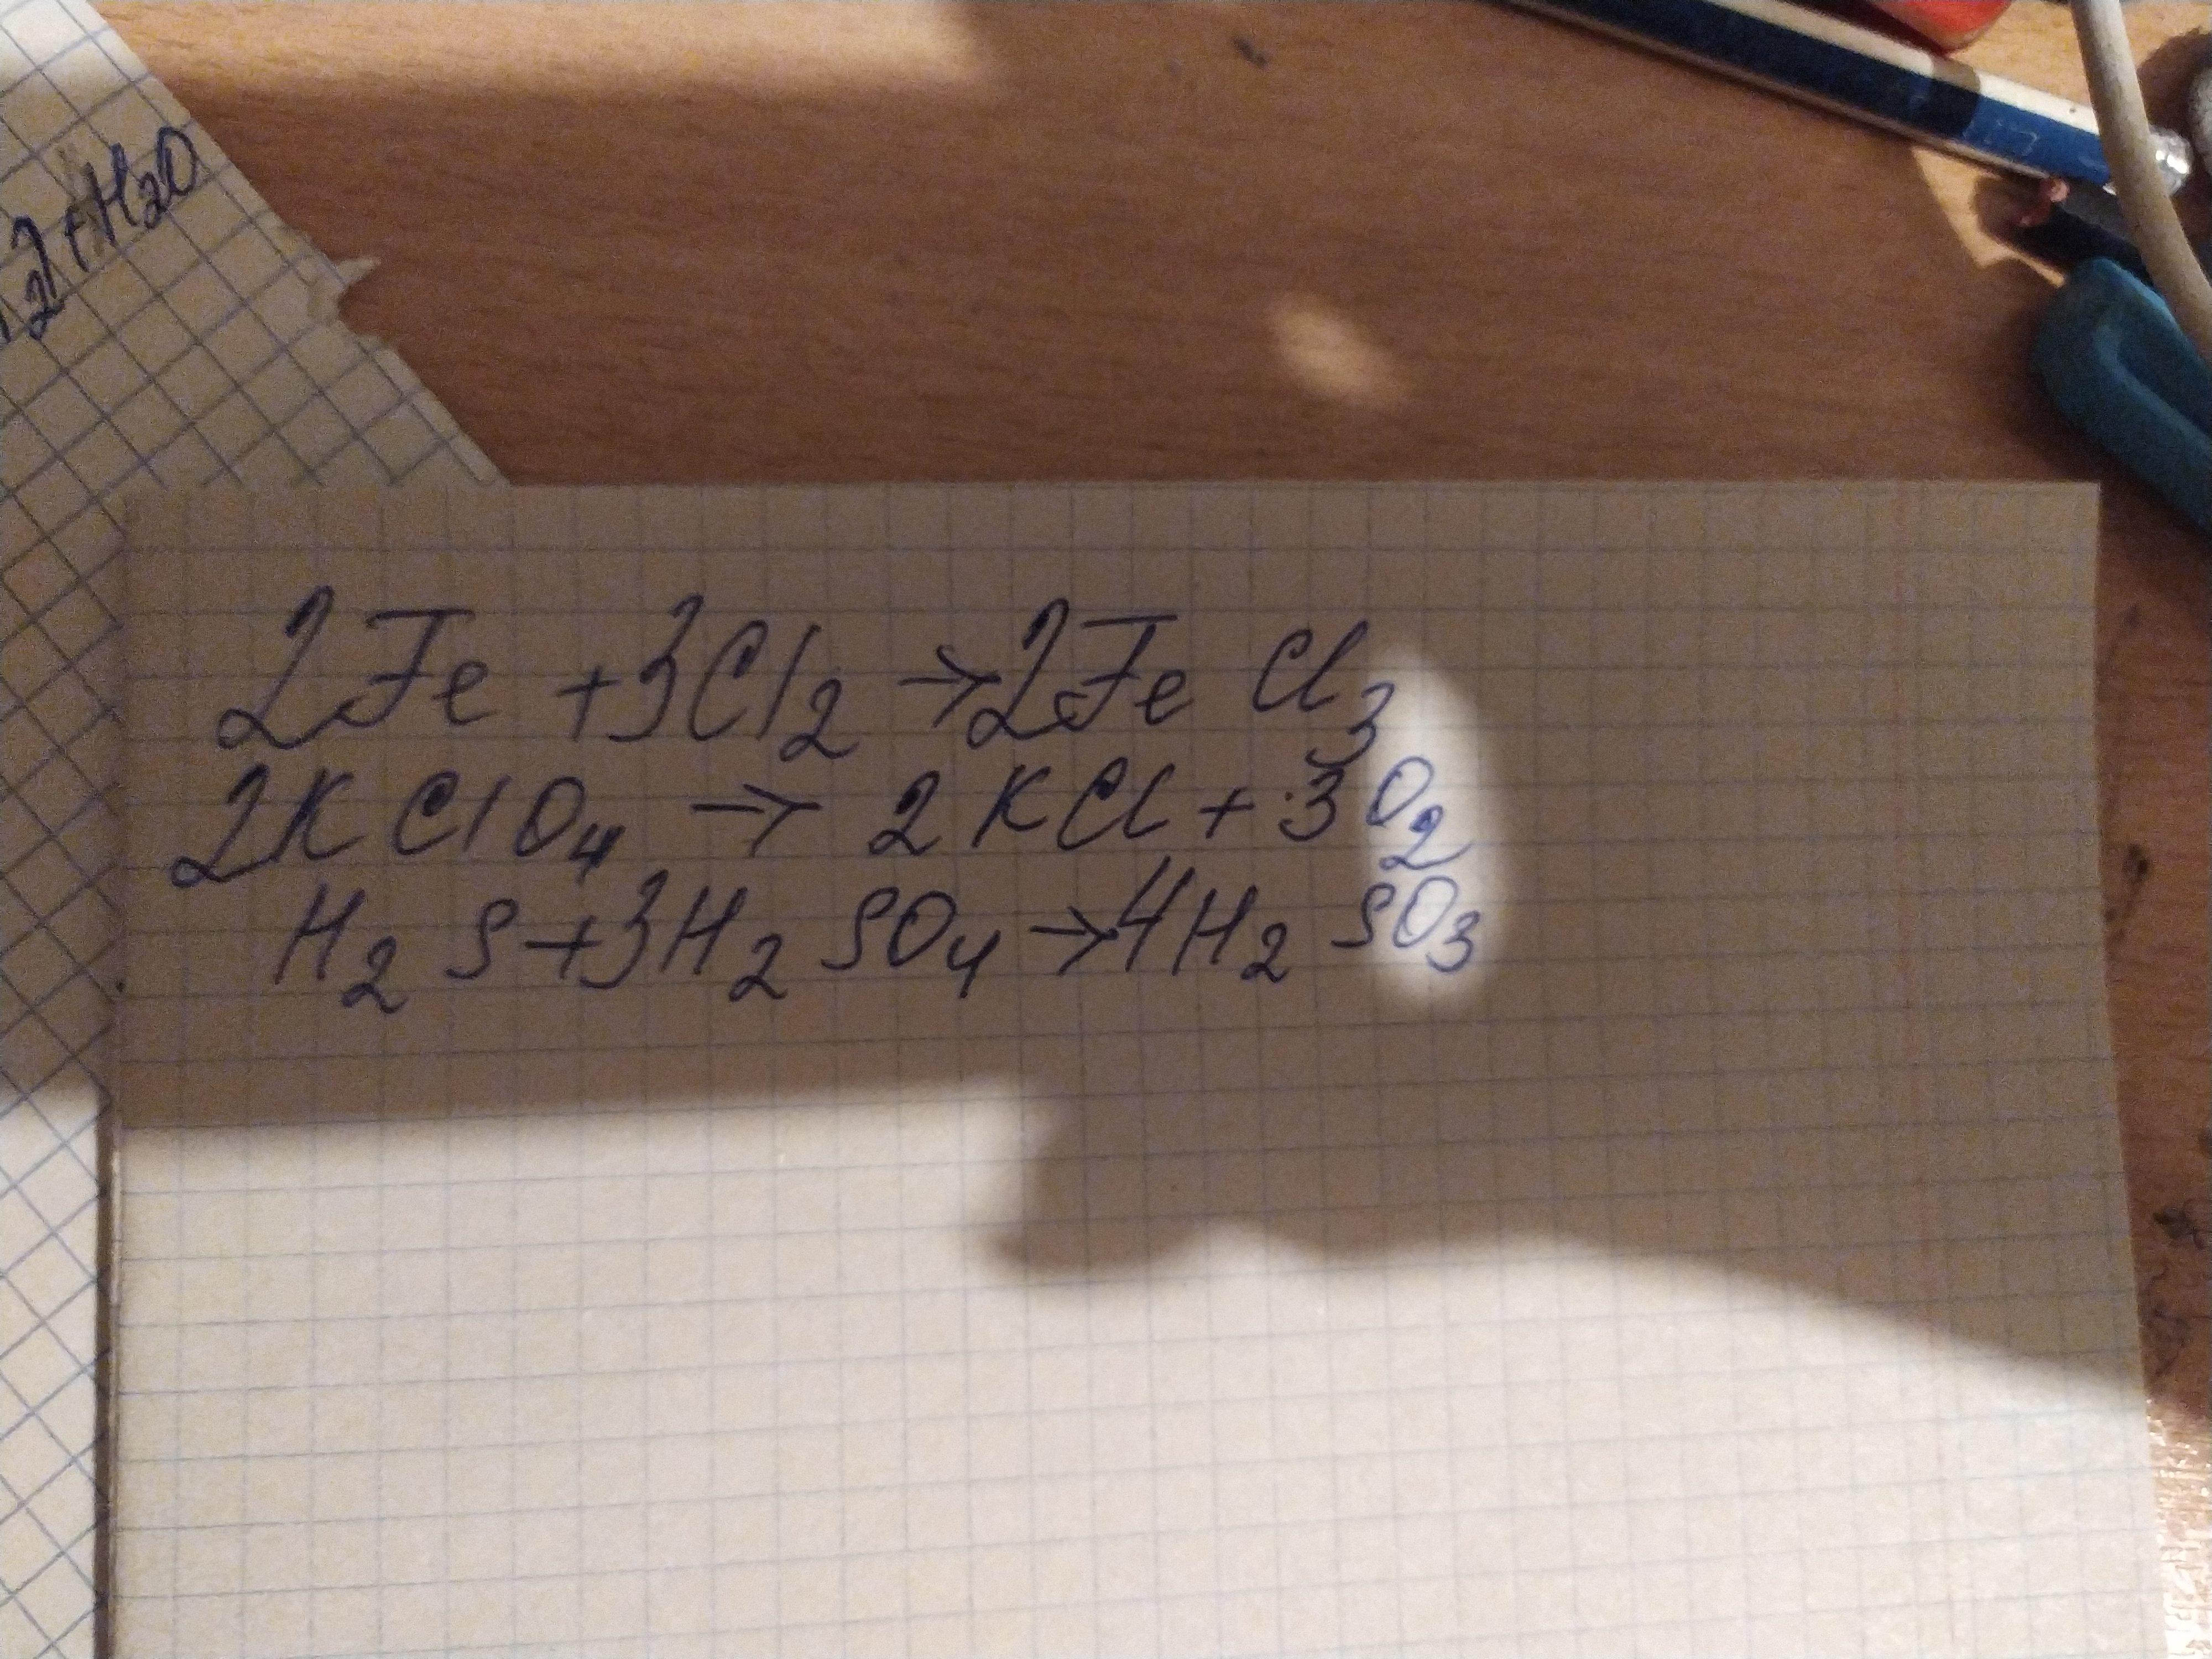 2 + H2O
2Fe + 3Cl2 → 2FeCl3
2KClO4 → 2KCl + 3O2
H2S + 3H2SO4 → 4H2SO3